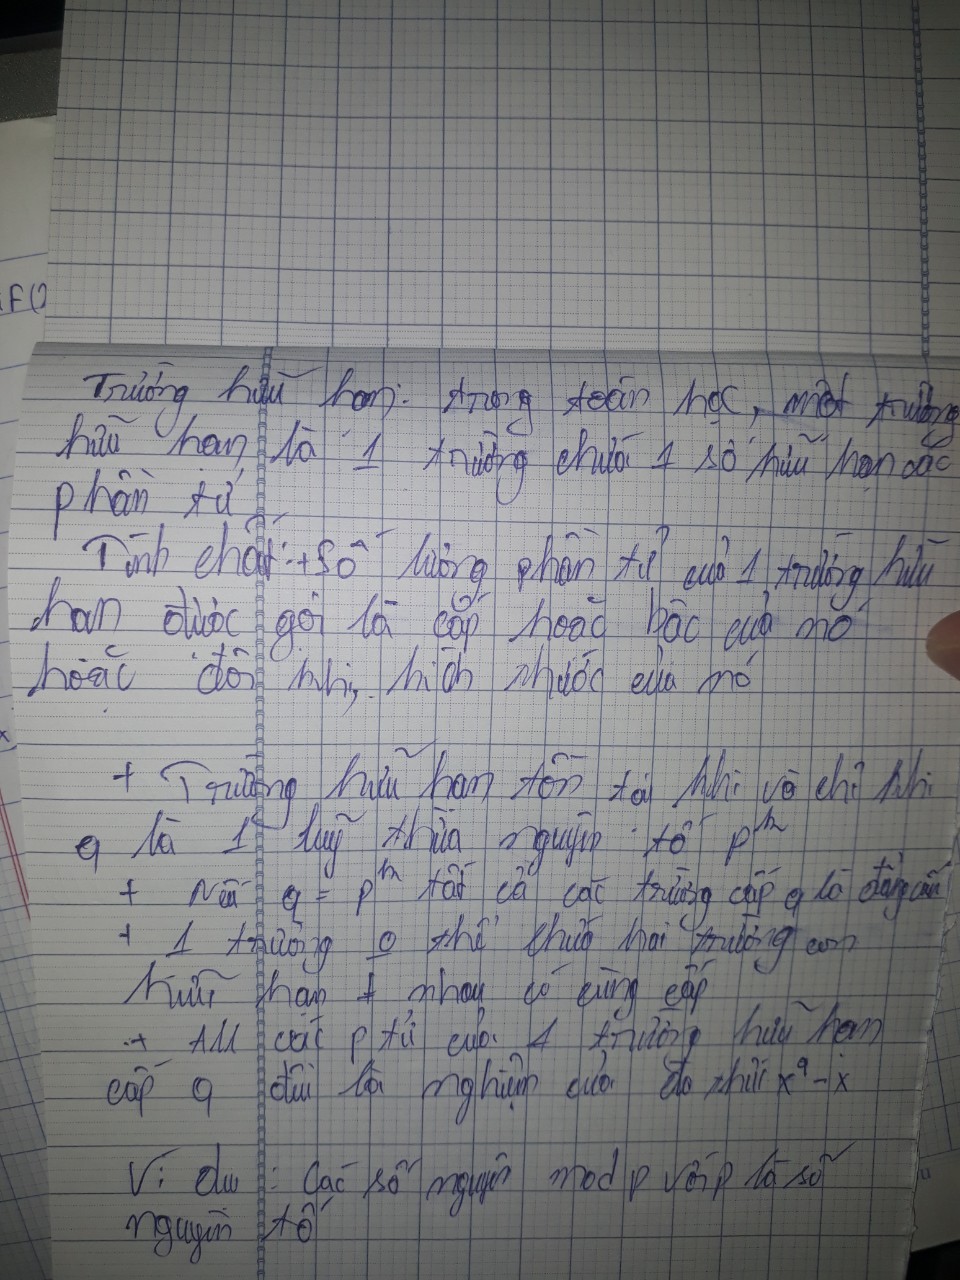 F(
Trường hữu hạn: trong toán học, một trường
hữu hạn là 1 trường chứa 1 số hữu hạn các
phần tử
Tính chất: + Số lượng phần tử của 1 trường hữu
hạn được gọi là cấp hoặc bậc của nó
hoặc đôi khi, kích thước của nó
+ Trường hữu hạn tồn tại khi và chỉ khi
q là 1 luỹ thừa nguyên tố pᵏ
+ Nếu q = pᵏ tất cả các trường cấp q là đẳng cấu
+ 1 trường o thể chứa hai trường con
hữu hạn ≠ nhau có cùng cấp
+ All các p tử của 1 trường hữu hạn
cấp q đều là nghiệm của đa thức x^q - x
Ví dụ: Các số nguyên mod p với p là số
nguyên tố